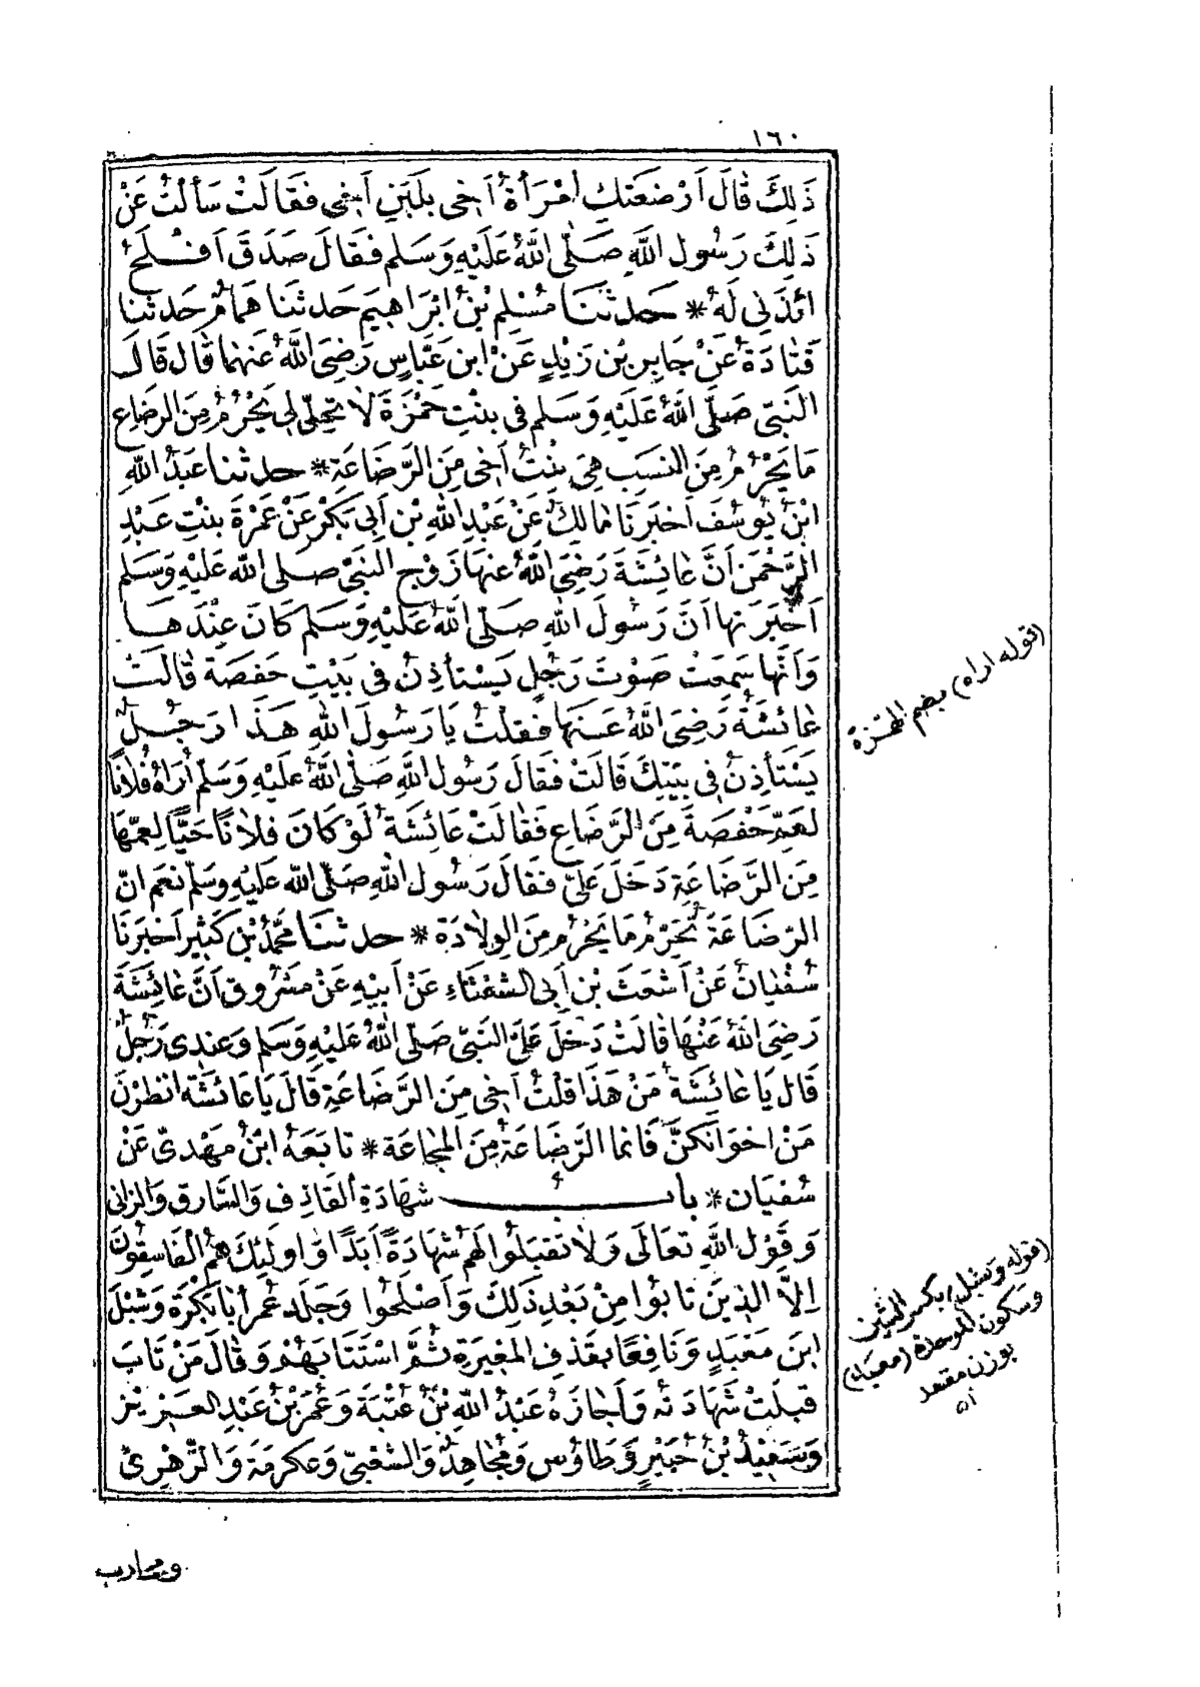 ١٦٠
ذَلِكَ قَالَ أَرْضَعَتْكِ امْرَأَةُ أَخِي بِلَبَنِ أَخِي فَقَالَتْ سَأَلْتُ عَنْ
ذَلِكَ رَسُولَ اللهِ صَلَّى اللهُ عَلَيْهِ وَسَلَّمَ فَقَالَ صَدَقَ أَفْلَحُ
ائْذَنِي لَهُ * حَدثَنَا مُسْلِمُ بْنُ إِبْرَاهِيمَ حَدثنَا هَمَّامٌ حَدثنَا
قَتَادَةُ عَنْ جَابِرِ بْنِ زَيْدٍ عَنْ ابنِ عَبَّاسٍ رَضِيَ اللهُ عَنْهُمَا قَالَ قَالَ
النَّبِيُّ صَلَّى اللهُ عَلَيْهِ وَسَلَّمَ فِي بِنْتِ حَمْزَةَ لَا تَحِلُّ لِي يَحْرُمُ مِنَ الرَّضَاعِ
مَا يَحْرُمُ مِنَ النَّسَبِ هِيَ بِنْتُ أَخِي مِنَ الرَّضَاعَةِ * حدثنا عَبْدُ اللهِ
ابْنُ يُوسُفَ أَخْبَرَنَا مَالِكٌ عَنْ عَبْدِ اللهِ بْنِ أَبِي بَكْرٍ عَنْ عَمْرَةَ بِنْتِ عَبْدِ
الرَّحْمَنِ أَنَّ عَائِشَةَ رَضِيَ اللهُ عَنْهَا زَوْجَ النَّبِيِّ صلى الله عَلَيْهِ وَسَلَّمَ
أَخْبَرَتْهَا أَنَّ رَسُولَ اللهِ صَلَّى اللهُ عَلَيْهِ وَسَلَّمَ كَانَ عِنْدَهَا
وَأَنَّهَا سَمِعَتْ صَوْتَ رَجُلٍ يَسْتَأْذِنُ فِي بَيْتِ حَفْصَةَ قَالَتْ
عَائِشَةُ رَضِيَ اللهُ عَنْهَا فَقُلْتُ يَا رَسُولَ اللهِ هَذَا رَجُلٌ
يَسْتَأْذِنُ فِي بَيْتِكَ قَالَتْ فَقَالَ رَسُولُ اللهِ صَلَّى اللهُ عَلَيْهِ وَسَلَّمَ أُرَاهُ فُلَانًا
لِعَمِّ حَفْصَةَ مِنَ الرَّضَاعِ فَقَالَتْ عَائِشَةُ لَوْ كَانَ فُلَانًا حَيًّا لِعَمِّهَا
مِنَ الرَّضَاعَةِ دَخَلَ عَلَيَّ فَقَالَ رَسُولُ اللهِ صَلَّى الله عَلَيْهِ وَسَلَّمَ نَعَمْ انَّ
الرَّضَاعَةَ تُحَرِّمُ مَا يَحْرُمُ مِنَ الوِلَادَةِ * حدثنَا مُحَمَّدُ بْنُ كَثِيرٍ أَخْبَرَنَا
سُفْيَانُ عَنْ أَشْعَثَ بْنِ أَبِي الشَّعْثَاءِ عَنْ أَبِيهِ عَنْ مَسْرُوقٍ أَنَّ عَائِشَةَ
رَضِيَ اللهُ عَنْهَا قَالَتْ دَخَلَ عَلَيَّ النَّبِيُّ صَلَّى اللهُ عَلَيْهِ وَسَلَّمَ وَعِنْدِي رَجُلٌ
قَالَ يَا عَائِشَةُ مَنْ هَذَا قُلْتُ أَخِي مِنَ الرَّضَاعَةِ قَالَ يَا عَائِشَةُ انْظُرْنَ
مَنْ اخْوَانُكُنَّ فَانما الرَّضَاعَةُ مِنَ المَجَاعَةِ * تَابَعَهُ ابْنُ مَهْدِيٍّ عَنْ
سُفْيَان * باب شَهَادَةِ القَاذِفِ وَالسَّارِقِ وَالزَّانِي
وَقَوْلِ اللهِ تَعَالَى وَلَا تَقْبَلُوا لَهُمْ شَهَادَةً أَبَدًا وَاولَئِكَ هُمُ الْفَاسِقُونَ
إلَّا الَّذِينَ تَابُوا مِنْ بَعْدِ ذَلِكَ وَأَصْلَحُوا وَجَلَدَ عُمَرُ أَبَا بَكْرَةَ وَشِبْلَ
ابنَ مَعْبَدٍ وَنَافِعًا بِقَذْفِ المُغِيرَةِ ثُمَّ اسْتَتَابَهُمْ وَقَالَ مَنْ تَابَ
قَبِلْتُ شَهَادَتَهُ وَأَجَازَهُ عَبْدُ اللهِ بْنُ عُتْبَةَ وَعُمَرُ بْنُ عَبْدِ العَزِيزِ
وَسَعِيدُ بْنُ جُبَيْرٍ وَطَاوُسٌ وَمُجَاهِدٌ وَالشَّعْبِيُّ وَعِكْرِمَةُ وَالزُّهْرِيُّ
ومحارب
(قوله اراه) بضم الهمزة
(قوله وشبل) بكسر الشين
وسكون الموحدة (معبد)
بوزن مقعد
اه